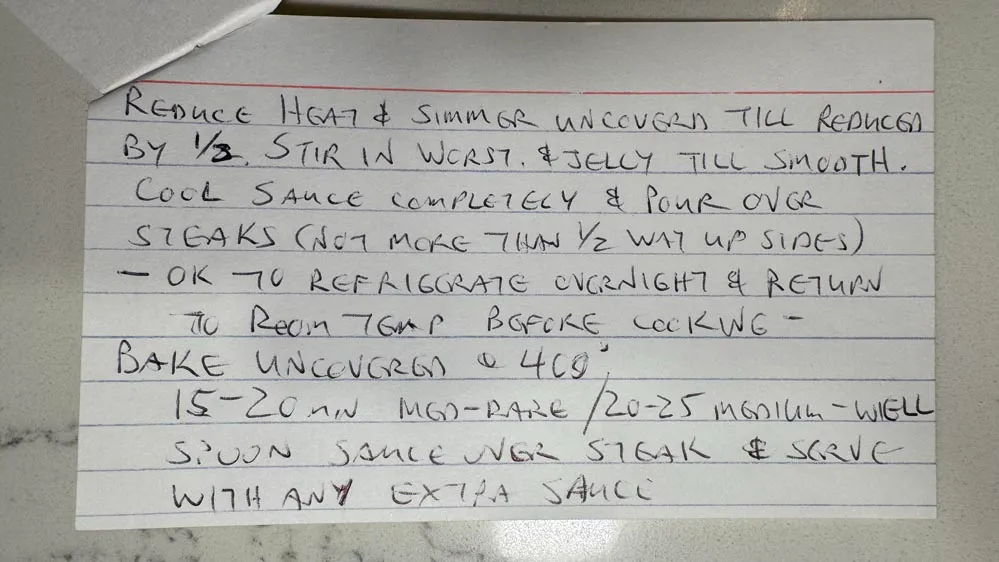 REDUCE HEAT & SIMMER UNCOVERD TILL REDUCED
BY 1/2. STIR IN WORST. & JELLY TILL SMOOTH.
COOL SAUCE COMPLETELY & POUR OVER
STEAKS (NOT MORE THAN 1/2 WAY UP SIDES)
— OK TO REFRIGERATE OVERNIGHT & RETURN
TO ROOM TEMP BEFORE COOKING —
BAKE UNCOVERED @ 400°
15-20 MIN MED-RARE / 20-25 MEDIUM-WELL
SPOON SAUCE OVER STEAK & SERVE
WITH ANY EXTRA SAUCE